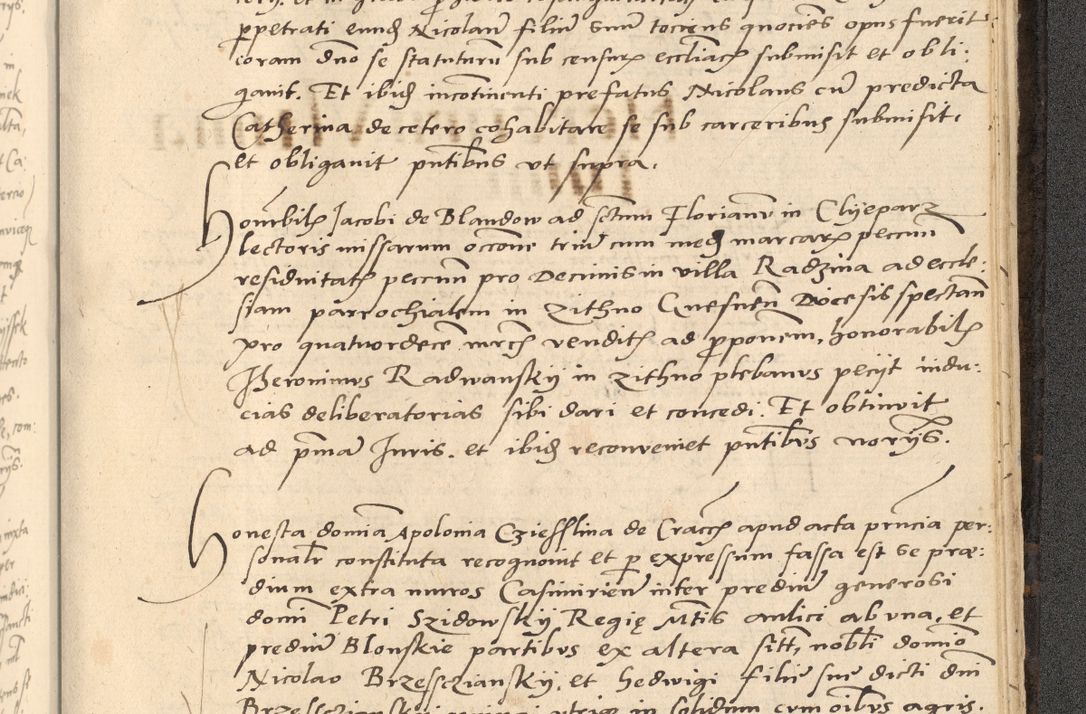 ppetrati eund Nicolaum filium suum tociens quociens opus fuerit
coram dno se statuturum sub censuris eccliacis submisit et obli:
gavit. Et ibid incontinenti prefatus Nicolaus cum predicta
Catherina de cetero cohabitare se sub carceribus submisit.
et obligavit pntibus ut supra.
Honorabilis Jacobi de Blandow ad sctum Florianum in Clijeparz
lectoris missarum occone trium cum med marcarum peccum
residuitatis peccun pro Decimis in villa Radzina ad eccle:
siam parrochialem in Zithno Gnesnen Diocesis spectan
pro quatuordece mrcis venditis ad pponem, honorabilis
Jheronimus Radwanskij in Zithno plebanus pecijt indu:
cias deliberatorias sibi dari et concedi. Et obtinuit
ad pma Juris. et ibid reconvenet pntibus norijs.
Honesta domina Apolonia Czieslina de Cracch apud acta pnncia per:
sonalr constituta recognovit et p expressum fassa est se prae:
dium extra muros Casimirien inter predium generosi
domini Petri Szidowskij Regię Mtis aulici ab una, et
predium Blonskie partibus ex altera sitt, nobli domino
Nicolao Brzessczianskij. et hedwigi filie sue dicti dni
Brzessczianskij utriq in solidum cum oibus agris.